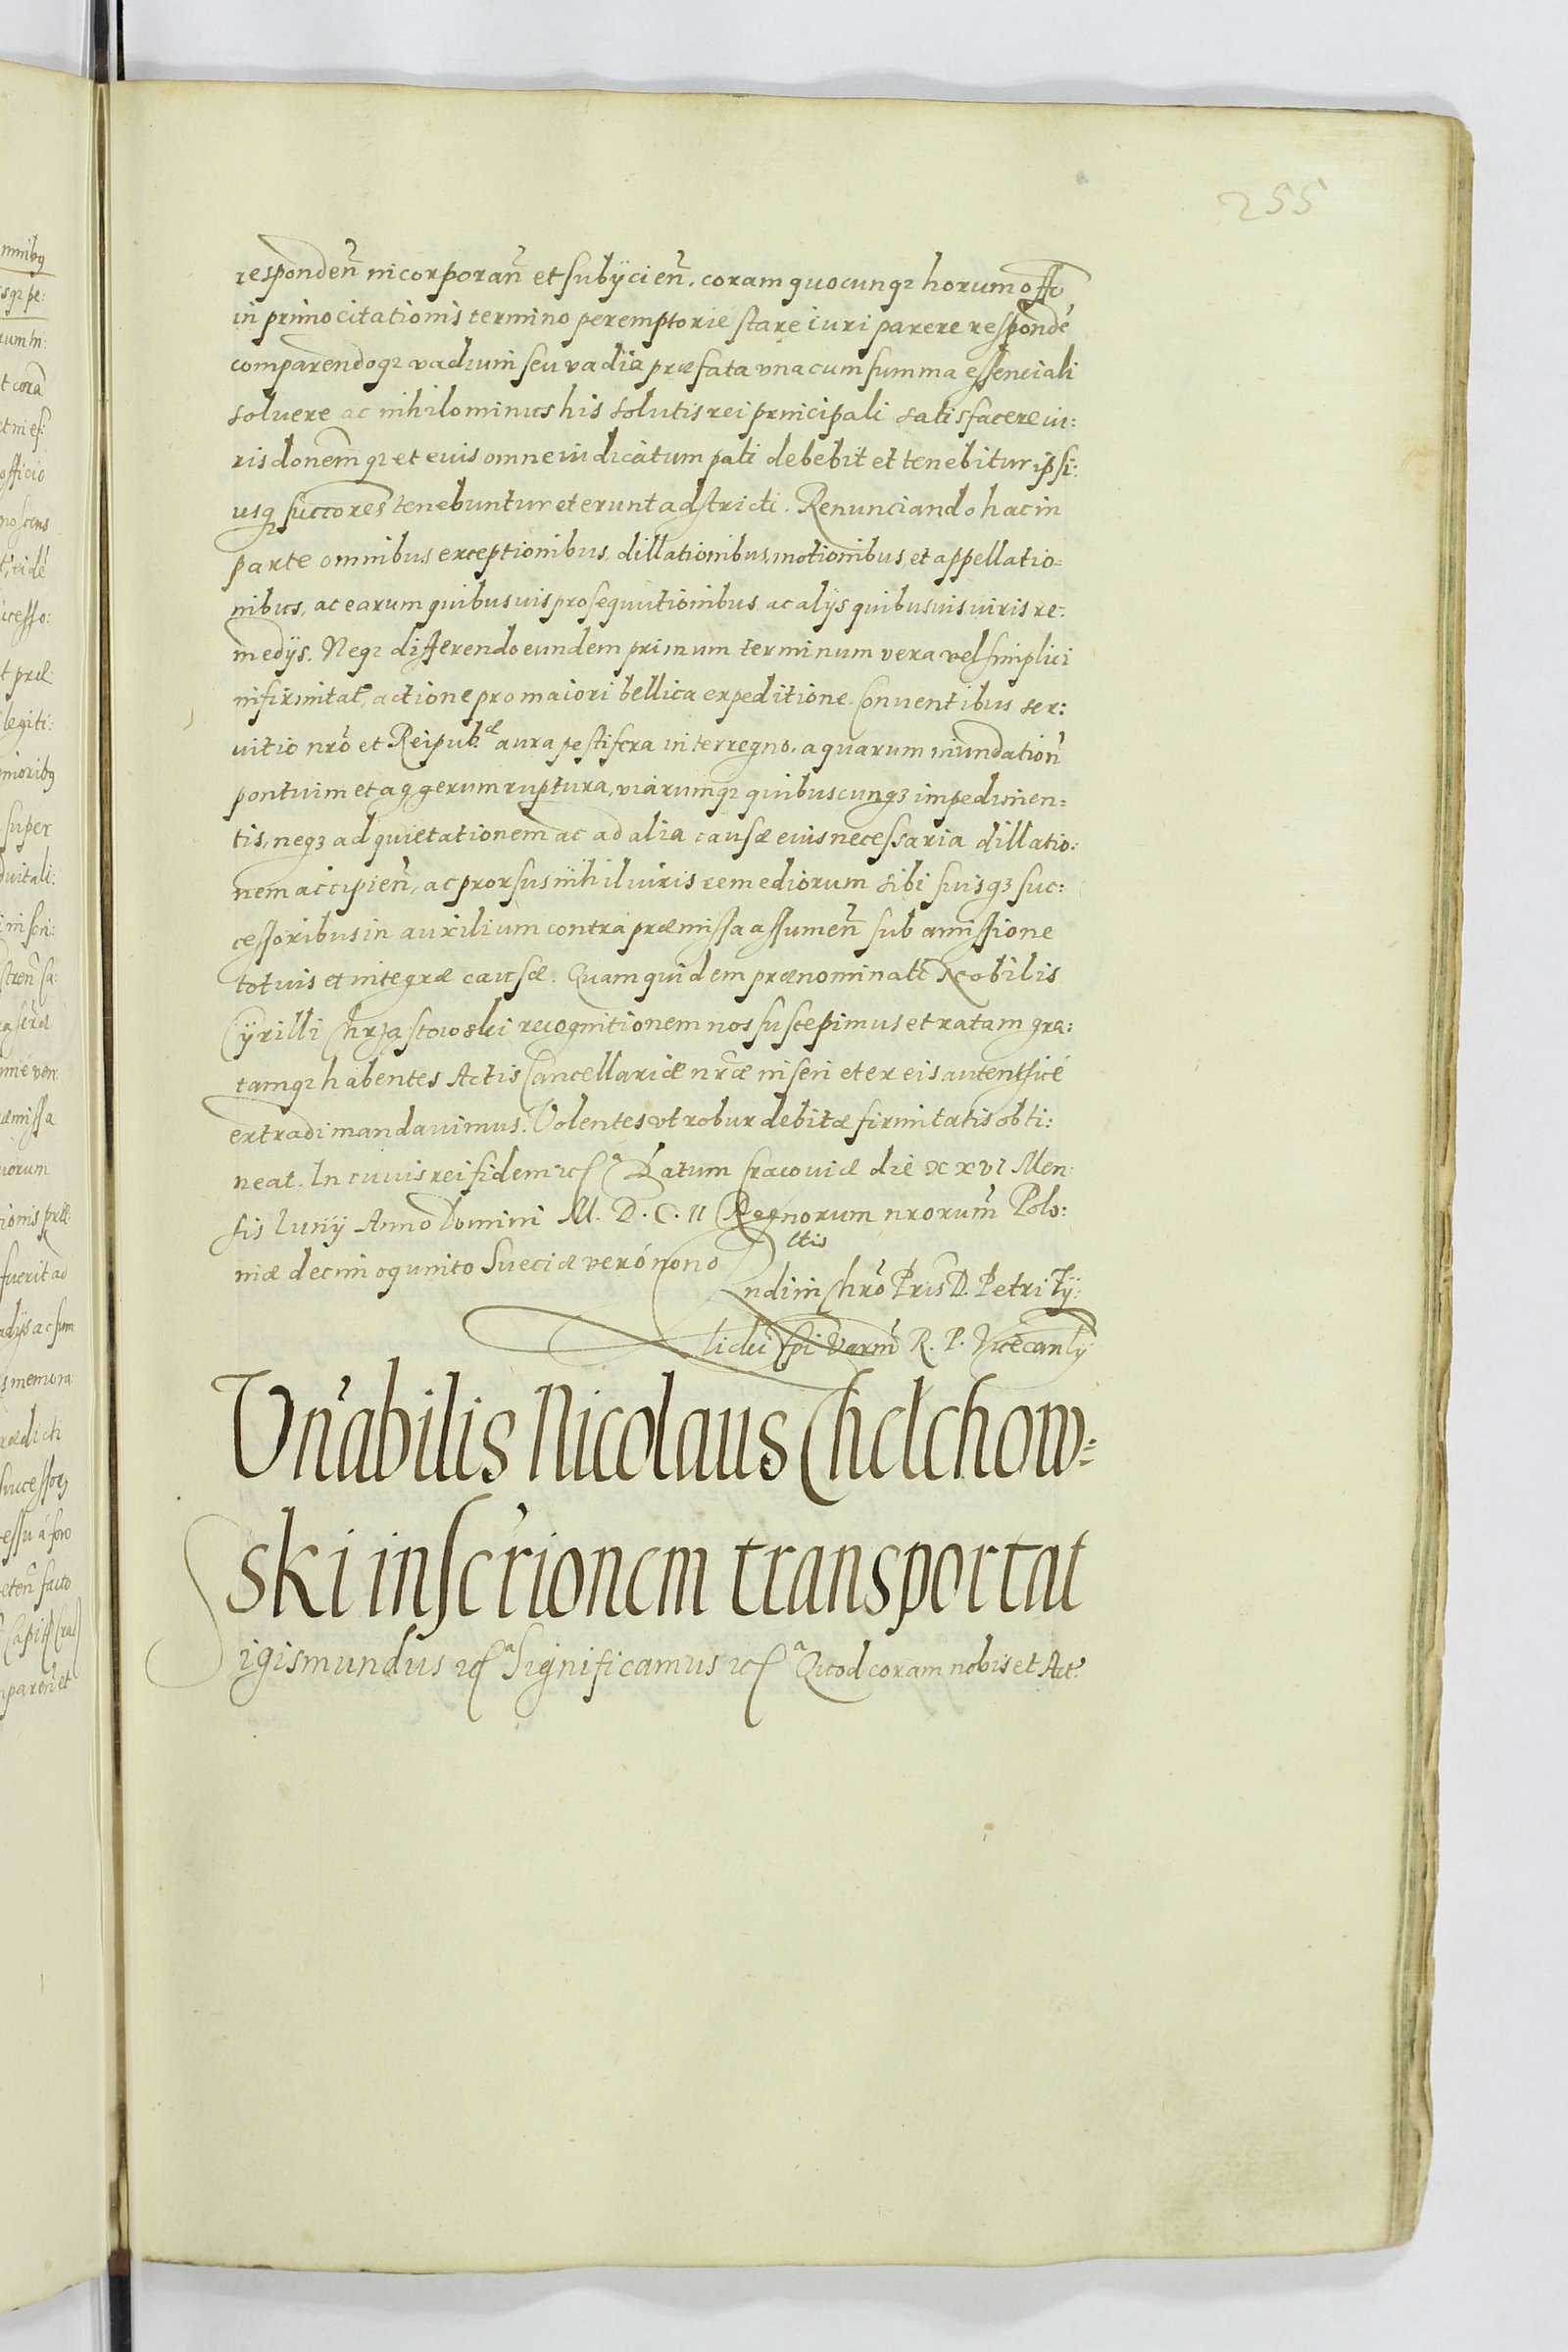 255
respondeñ incorporañ et subÿcieñ. coram quocunqȝ horum offo
in primo citationis termino peremptorie stare iuri parere respondé
comparendoqȝ vadium seu vadia præfata vna cum summa essenciali
soluere ac nihilominus his solutis rei principali satisfacere iu:
risdonemqȝ et euis omne iudicatum pati debebit et tenebitur ipsi:
usqȝ succores tenebuntur et erunt adstricti. Renunciando hac in
parte omnibus exceptionibus, dillationibus, motionibus, et appellatio=
nibus, ac earum quibusuis prosequutionibus ac alijs quibusuis iuris re:
medijs. Neqȝ differendo eundem primum terminum vera vel simplici
infirmitate, actione pro maiori bellica expeditione. Conuentibus ser:
uitio nrô et Reipub.æ aura pestifera interregno, aquarum inundationê
pontuim et aggerum ruptura, viarumqȝ quibuscunqȝ impedimen=
tis, neqȝ ad quietationem ac ad alia causæ euis necessaria dillatio:
nem accipieñ, ac prorsus nihil iuris remediorum sibi suisqȝ suc:
cessoribus in auxilium contra præmissa assumeñ sub amissione
totuis et integræ causæ. Quam quidem prænominati Nobilis
Cÿrilli Chrząstowski recognitionem nos suscepimus et ratam gra:
tamqȝ habentes Actis Cancellariæ nrǽ inseri et ex eis autenticé
extradi mandauimus. Volentes vt robur debitæ firmitatis obti:
neat. In cuius rei fidem etc.ª Datum Cracouiæ die XXVI Men
sis Iunij Anno Domini M. D. C. II Regnorum nrorum Polo:
niæ decimoquinto Sueciæ veró nono
ltis
ndi in Chrô Pris D. Petri Tÿ:
licki Epi Varm R. P. Vicecanly
Vnâbilis Nicolaus Chelchow=
ski inscrîonem transportat
Sigismundus etc.ª Significamus etc.ª Quod coram nobis et Act: